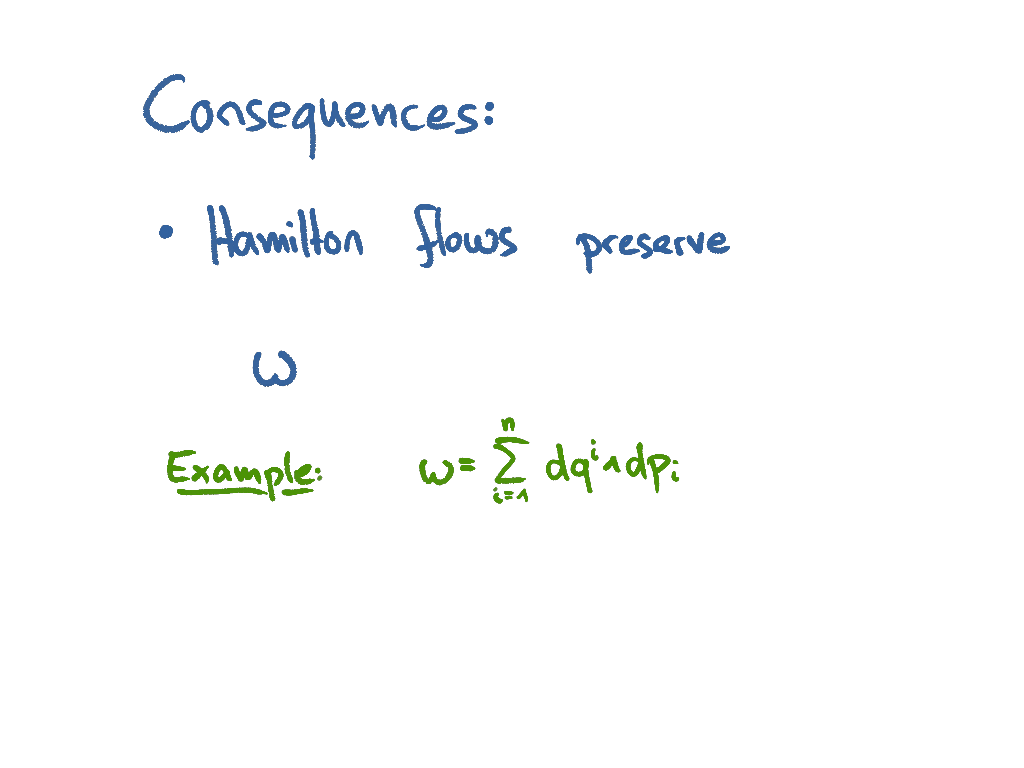 Consequences:
• Hamilton flows preserve
ω
Example: ω = ∑_{i=1}^{n} dq^i ∧ dp_i